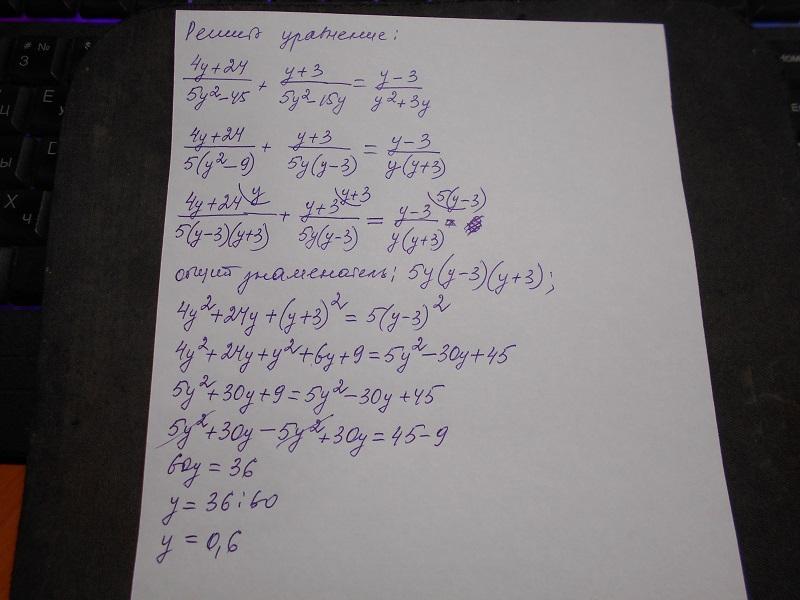 Решить уравнение:
(4y+24)/(5y²-45) + (y+3)/(5y²-15y) = (y-3)/(y²+3y)
(4y+24)/(5(y²-9)) + (y+3)/(5y(y-3)) = (y-3)/(y(y+3))
(4y+24 \y)/(5(y-3)(y+3)) + (y+3 \y+3)/(5y(y-3)) = (y-3 \5(y-3))/(y(y+3))
общий знаменатель: 5y(y-3)(y+3);
4y²+24y+(y+3)²=5(y-3)²
4y²+24y+y²+6y+9=5y²-30y+45
5y²+30y+9=5y²-30y+45
5y²+30y-5y²+30y=45-9
60y=36
y=36:60
y=0,6